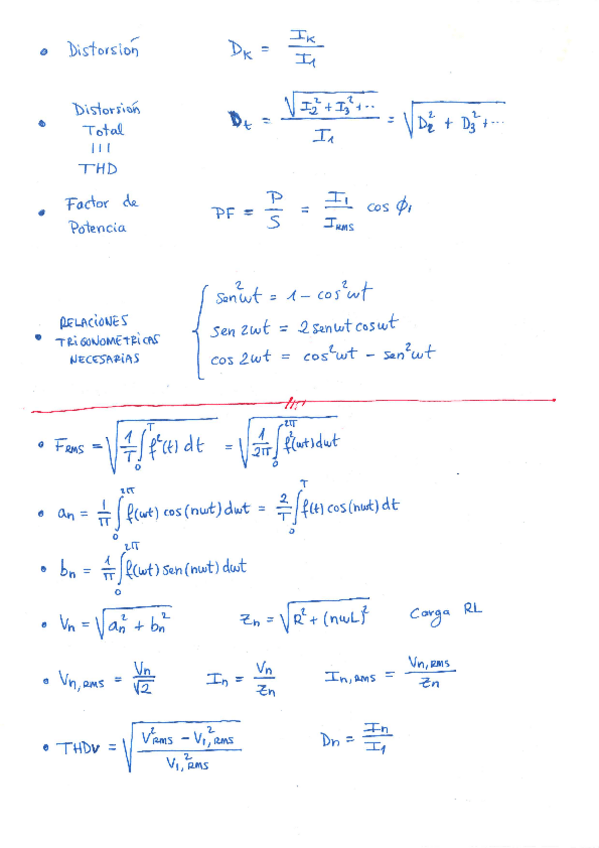 • Distorsión D_K = I_K / I_1
• Distorsión Total ≡ THD D_t = √(I_2² + I_3² + ··) / I_1 = √(D_2² + D_3² + ···)
• Factor de Potencia PF = P/S = I_1 / I_RMS cos φ_1
• RELACIONES TRIGONOMETRICAS NECESARIAS
sen²wt = 1 - cos²wt
sen 2wt = 2 senwt coswt
cos 2wt = cos²wt - sen²wt
• F_RMS = √(1/T ∫_0^T f²(t) dt) = √(1/2π ∫_0^2π f²(wt) dwt)
• a_n = 1/π ∫_0^2π f(wt) cos(nwt) dwt = 2/T ∫_0^T f(t) cos(nwt) dt
• b_n = 1/π ∫_0^2π f(wt) sen(nwt) dwt
• V_n = √(a_n² + b_n²) Z_n = √(R² + (nwL)²) Carga RL
• V_n,RMS = V_n / √2 I_n = V_n / Z_n I_n,RMS = V_n,RMS / Z_n
• THD_V = √((V²_RMS - V_1,²_RMS) / V_1,²_RMS) D_n = I_n / I_1